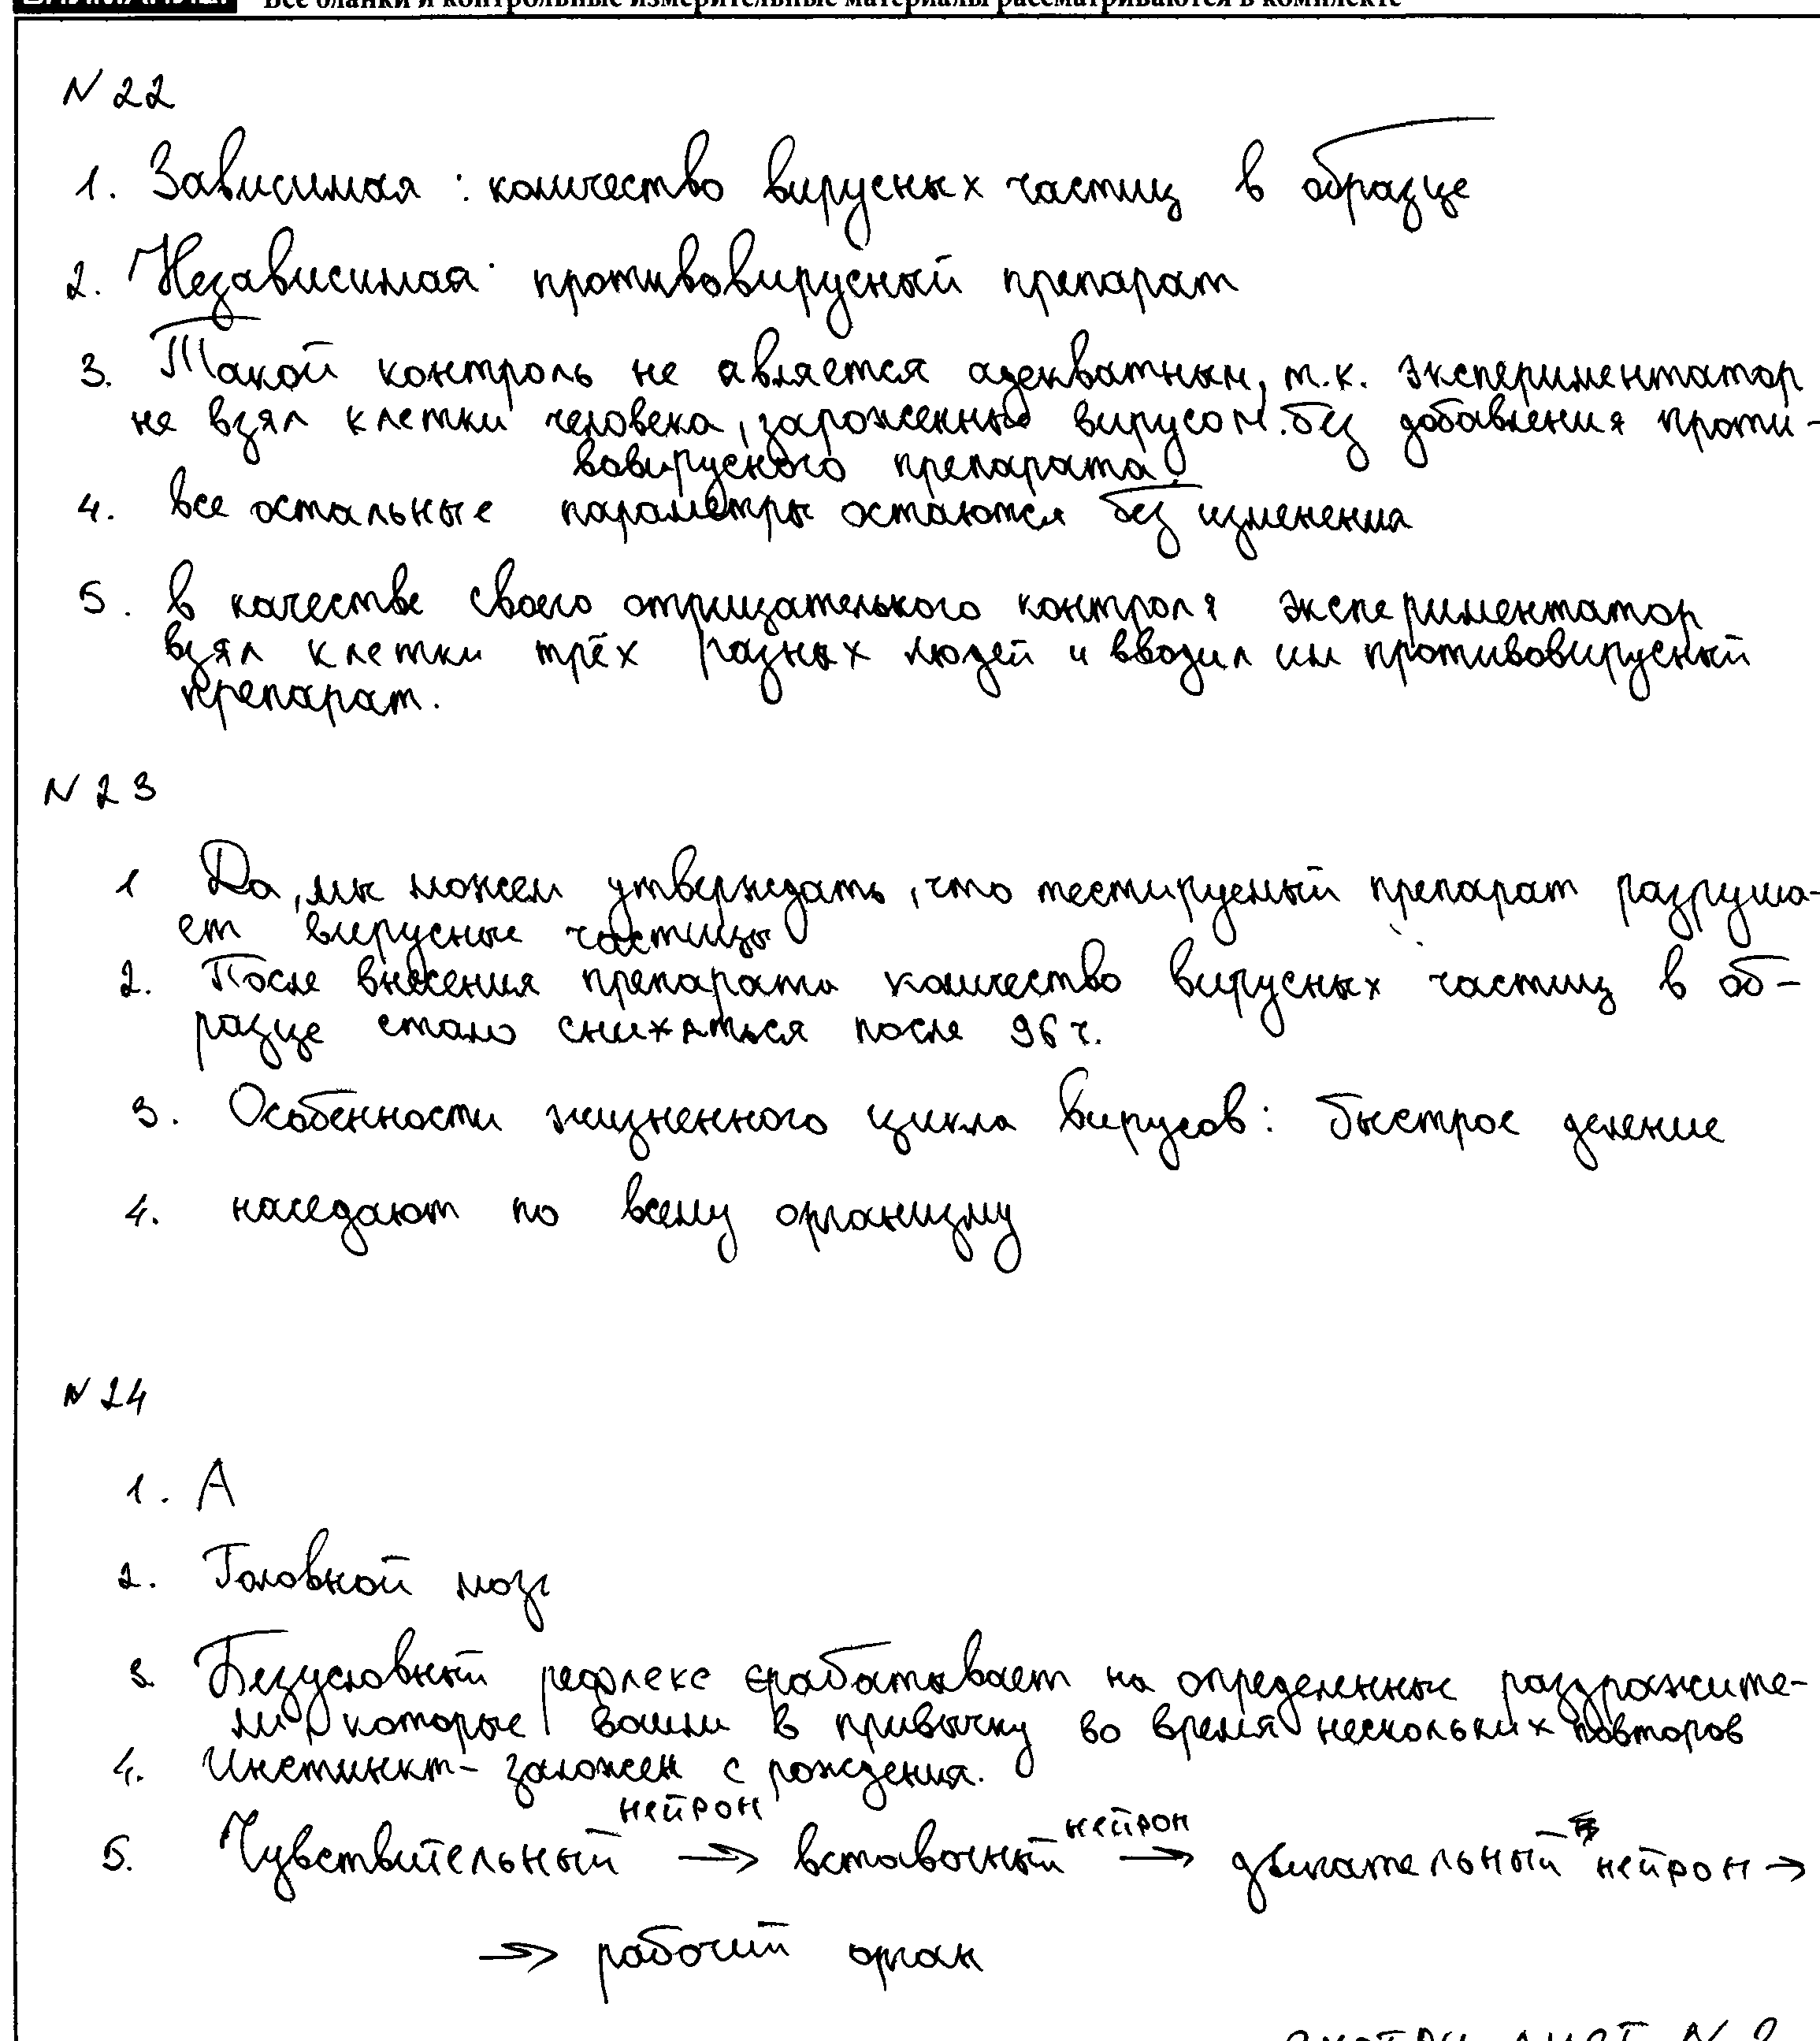 Все бланки и контрольные измерительные материалы рассматриваются в комплекте
N 22
1. Зависимая : количество вирусных частиц в образце
2. Независимая: противовирусный препарат
3. Такой контроль не является адекватным, т.к. экспериментатор
не взял клетки человека, зараженные вирусом без добавления проти-
вовирусного препарата.
4. все остальные параметры остаются без изменения
5. в качестве своего отрицательного контроля экспериментатор
взял клетки трёх разных людей и вводил им противовирусный
препарат.
N 23
1 Да, мы можем утверждать, что тестируемый препарат разруша-
ет вирусные частицы
2. После внесения препарата количество вирусных частиц в об-
разце стало снижаться после 96 ч.
3. Особенности жизненного цикла вирусов: быстрое деление
4. наседают по всему организму
N 24
1. А
2. Головной мозг
3 Безусловный рефлекс срабатывает на определенные раздражите-
ли, которые вошли в привычку во время нескольких повторов
4. Инстинкт- заложен с рождения.
5. Чувствительный нейрон → вставочный нейрон → двигательный нейрон →
→ рабочий орган